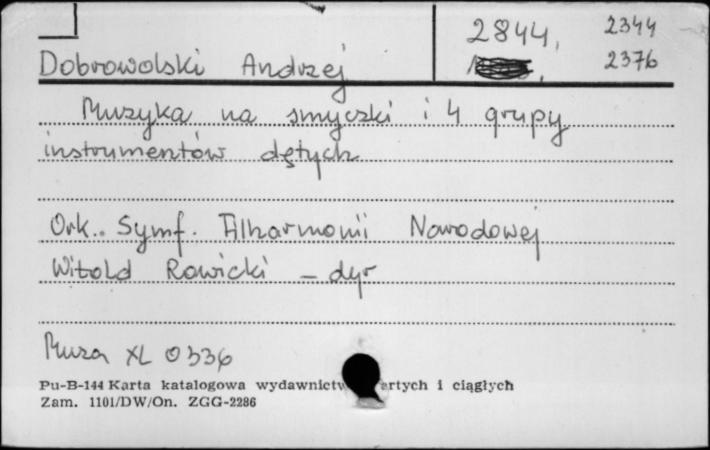 2844, 2344
2376
Dobrowolski Andrzej
Muzyka na smyczki i 4 grupy
instrumentów dętych
Ork. Symf. Filharmonii Narodowej
Witold Rowicki – dyr
Muza XL 0336
Pu-B-144 Karta katalogowa wydawnictw artych i ciągłych
Zam. 1101/DW/On. ZGG-2286